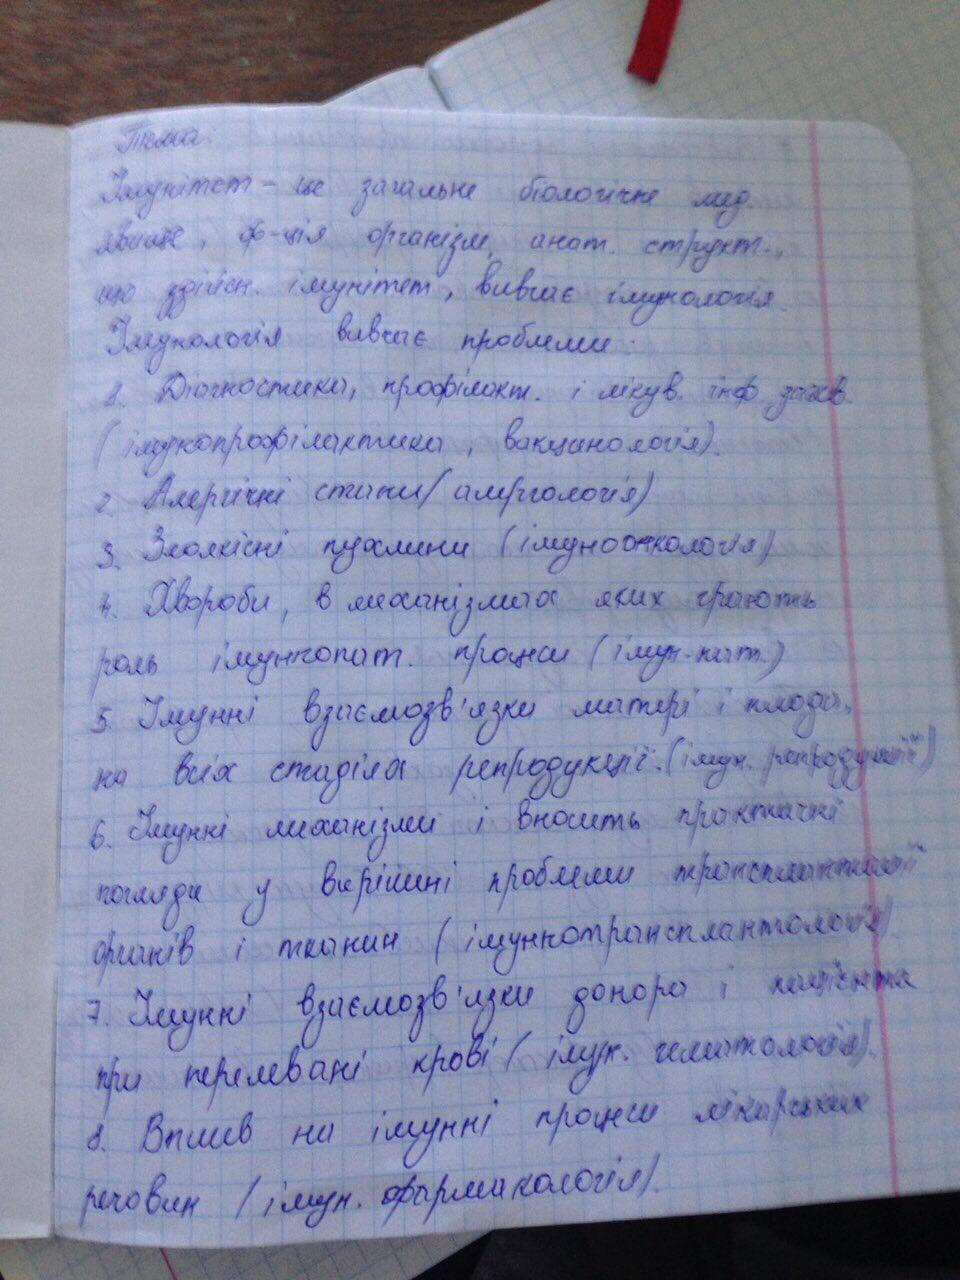 Тема:
Імунітет – це загальне біологічне мед.
явище, ф-ція організм, анат. структ.,
що здійсн. імунітет, вивчає імунологія.
Імунологія вивчає проблеми:
1. Діагностика, профілакт. і лікув. інф. захв.
(імунопрофілактика, вакцинологія).
2. Алергічні стани (алергологія)
3. Злоякісні пухлини (імуноонкологія)
4. Хвороби, в механізмах яких грають
роль імунопат. процеси (імун.-пат.)
5. Імунні взаємозв'язки матері і плода,
на всіх стадіях репродукції. (імун. репродукції)
6. Імунні механізми і вносить практичні
погляди у вирішині проблеми трансплантації
органів і тканин (імуннотрансплантологія).
7. Імунні взаємозв'язки донора і пацієнта
при перелевані крові (імун. гематологія).
8. Вплив на імунні процеси лікарських
речовин (імун. фармакологія).